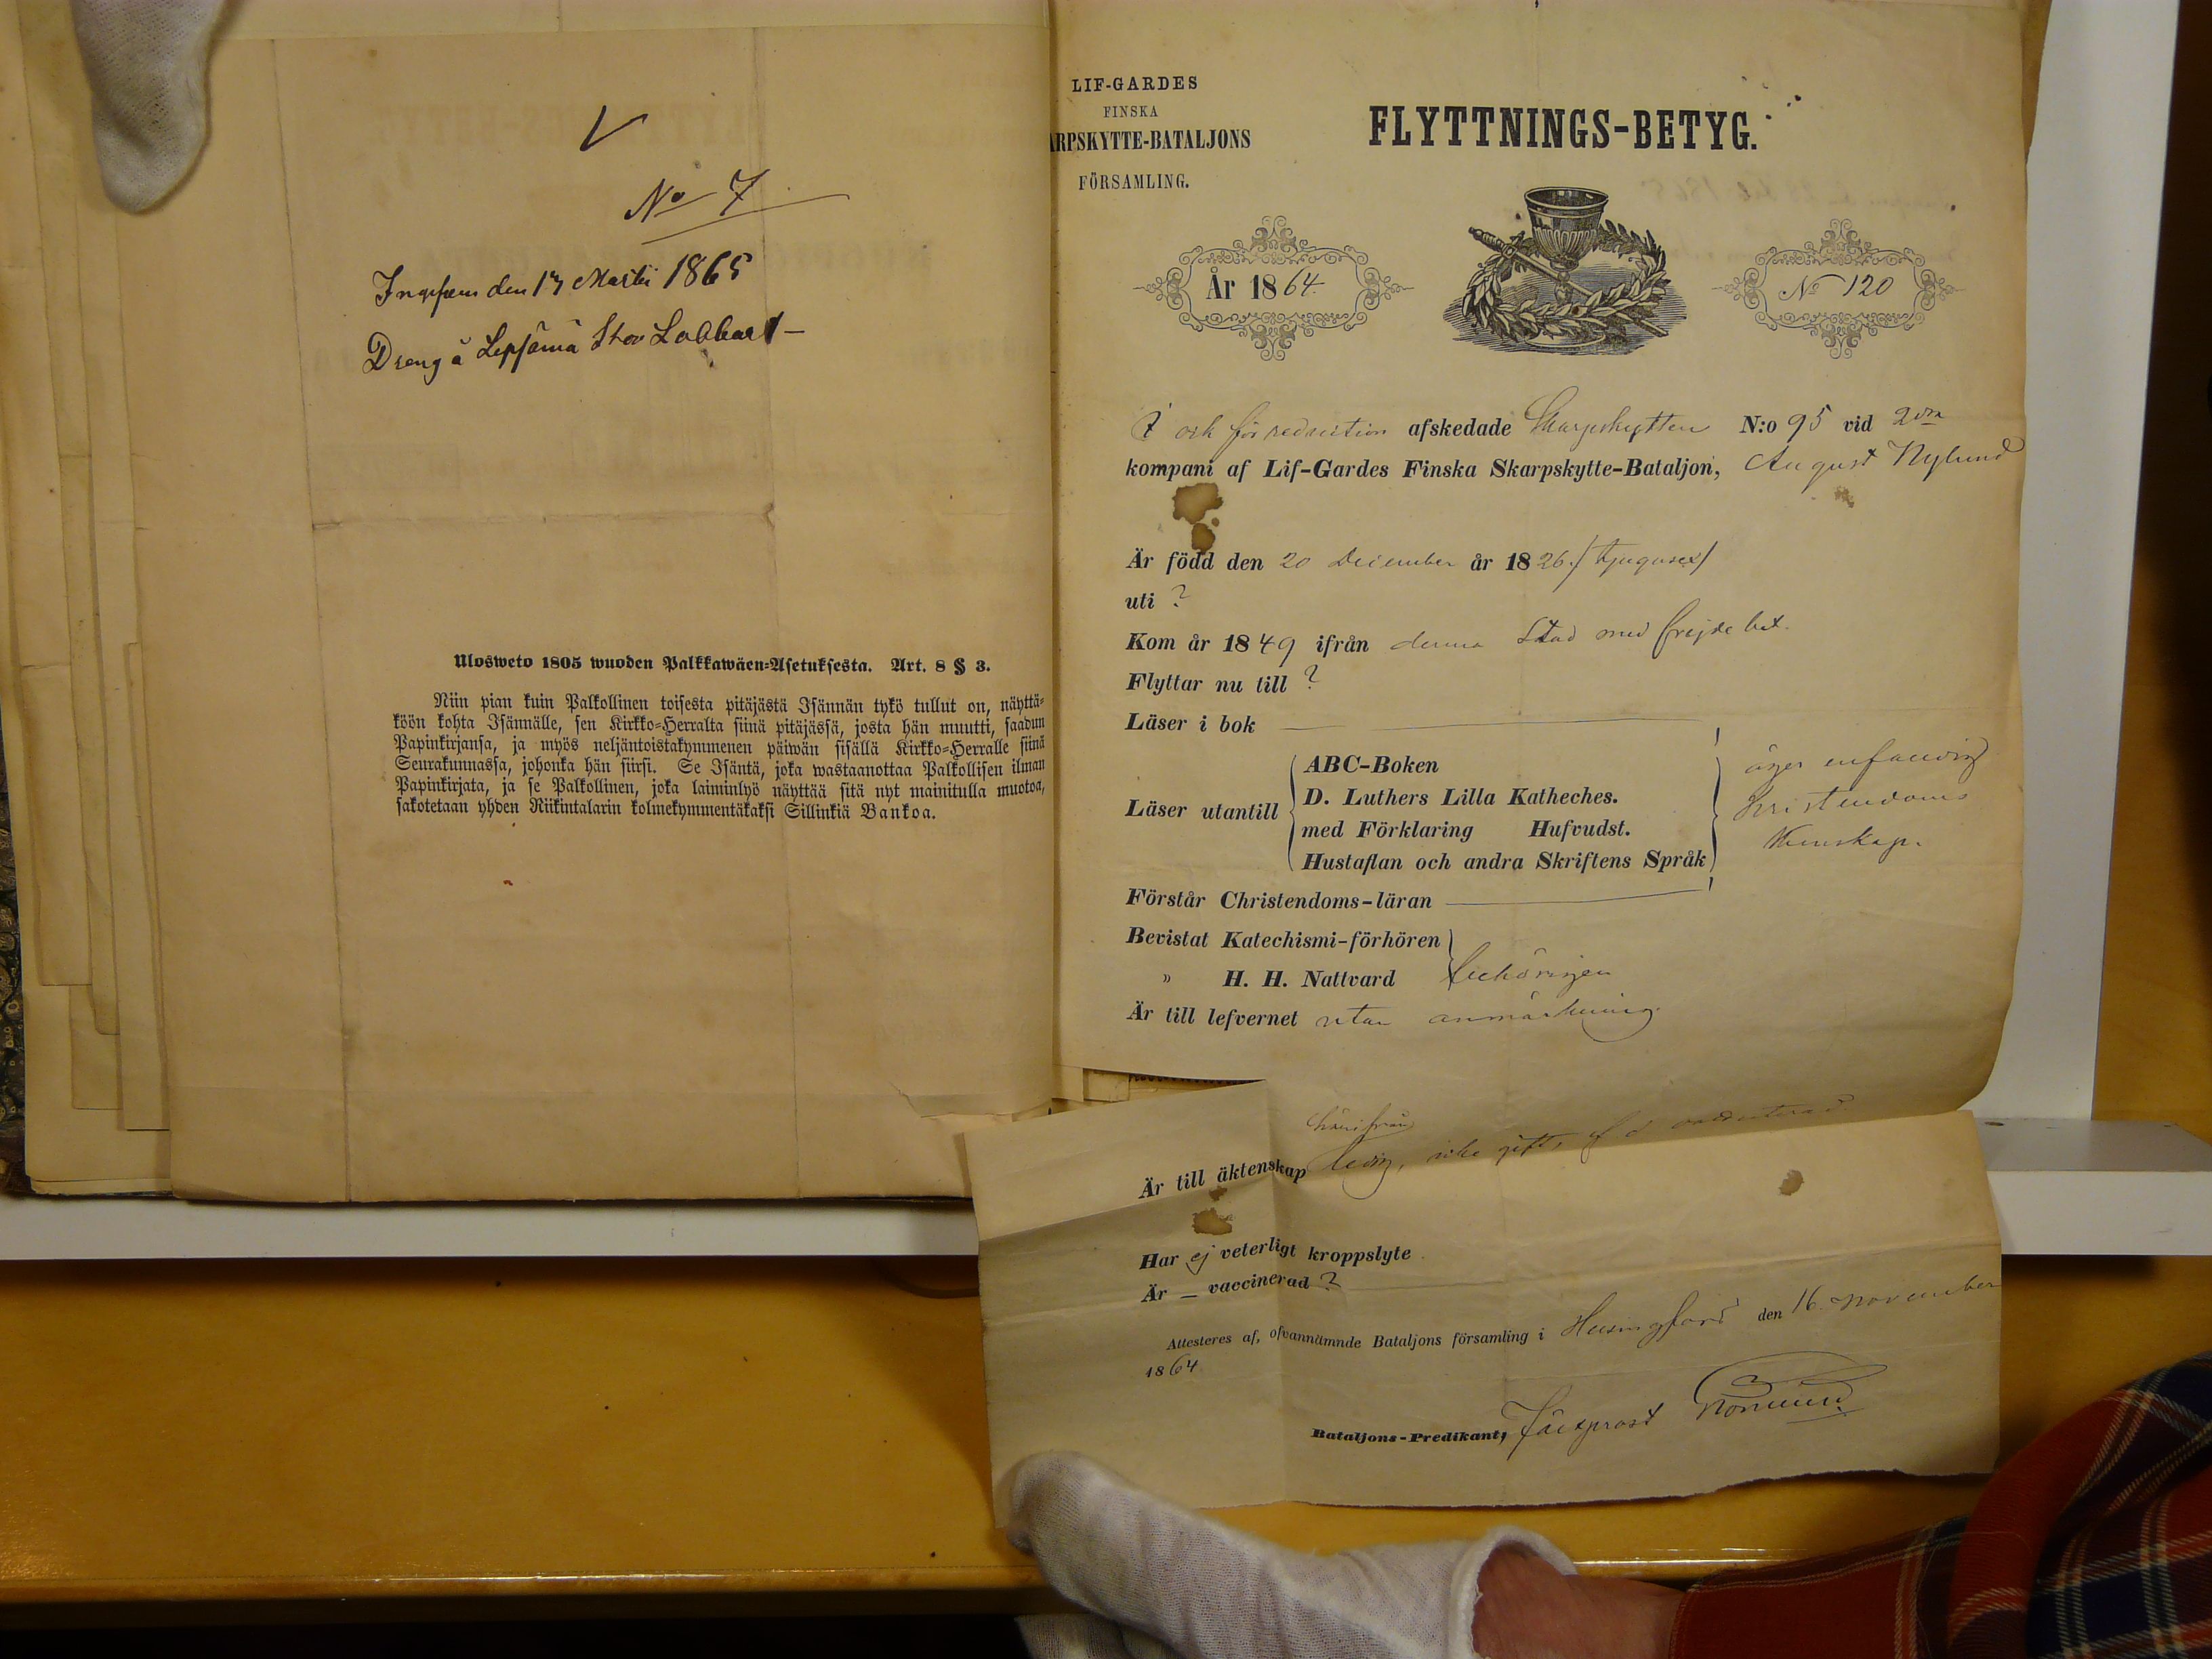 No 7
den 17 Martii 1865
Dreng å Lepsämä Stor Labbart
Ulosweto 1805 wuoden Palkkawäen-Asetuksesta. Art. 8 § 3.
Niin pian kuin Palkollinen toisesta pitäjästä Isännän tykö tullut on, näyttä-
köön kohta Isännälle, sen Kirkko-Herralta siinä pitäjässä, josta hän muutti, saadun
Papinkirjansa, ja myös neljäntoistakymmenen päiwän sisällä Kirkko-Herralle siinä
Seurakunnassa, johonka hän siirsi. Se Isäntä, joka wastaanottaa Palkollisen ilman
Papinkirjata, ja se Palkollinen, joka laiminlyö näyttää sitä nyt mainitulla muotoa,
sakotetaan yhden Riikintalarin kolmekymmentäkaksi Sillinkiä Bankoa.
LIF-GARDES
FINSKA
ARPSKYTTE-BATALJONS
FÖRSAMLING.
FLYTTNINGS-BETYG.
År 1864.
No 120
och för reduction afskedade Skarpskytten N:o 95 vid 2dra
kompani af Lif-Gardes Finska Skarpskytte-Bataljon, August Nylund
Är född den 20 December år 1826./tjugusex/
uti ?
Kom år 1849 ifrån denna Stad med frejde bet.
Flyttar nu till ?
Läser i bok
ABC-Boken
Läser utantill D. Luthers Lilla Katheches.
med Förklaring Hufvudst.
Hustaflan och andra Skriftens Språk
äger enfaldig
Kristendoms
Kunskap.
Förstår Christendoms-läran
Bevistat Katechismi-förhören
" H. H. Nattvard behörigen
Är till lefvernet utan anmärkning.
härifrån
Är till äktenskap ledig, icke gift,
Har ej veterligt kroppslyte
Är — vaccinerad ?
Attesteres af, ofvannämnde Bataljons församling i Helsingfors den 16 november
1864
Bataljons-Predikant, Fältprost